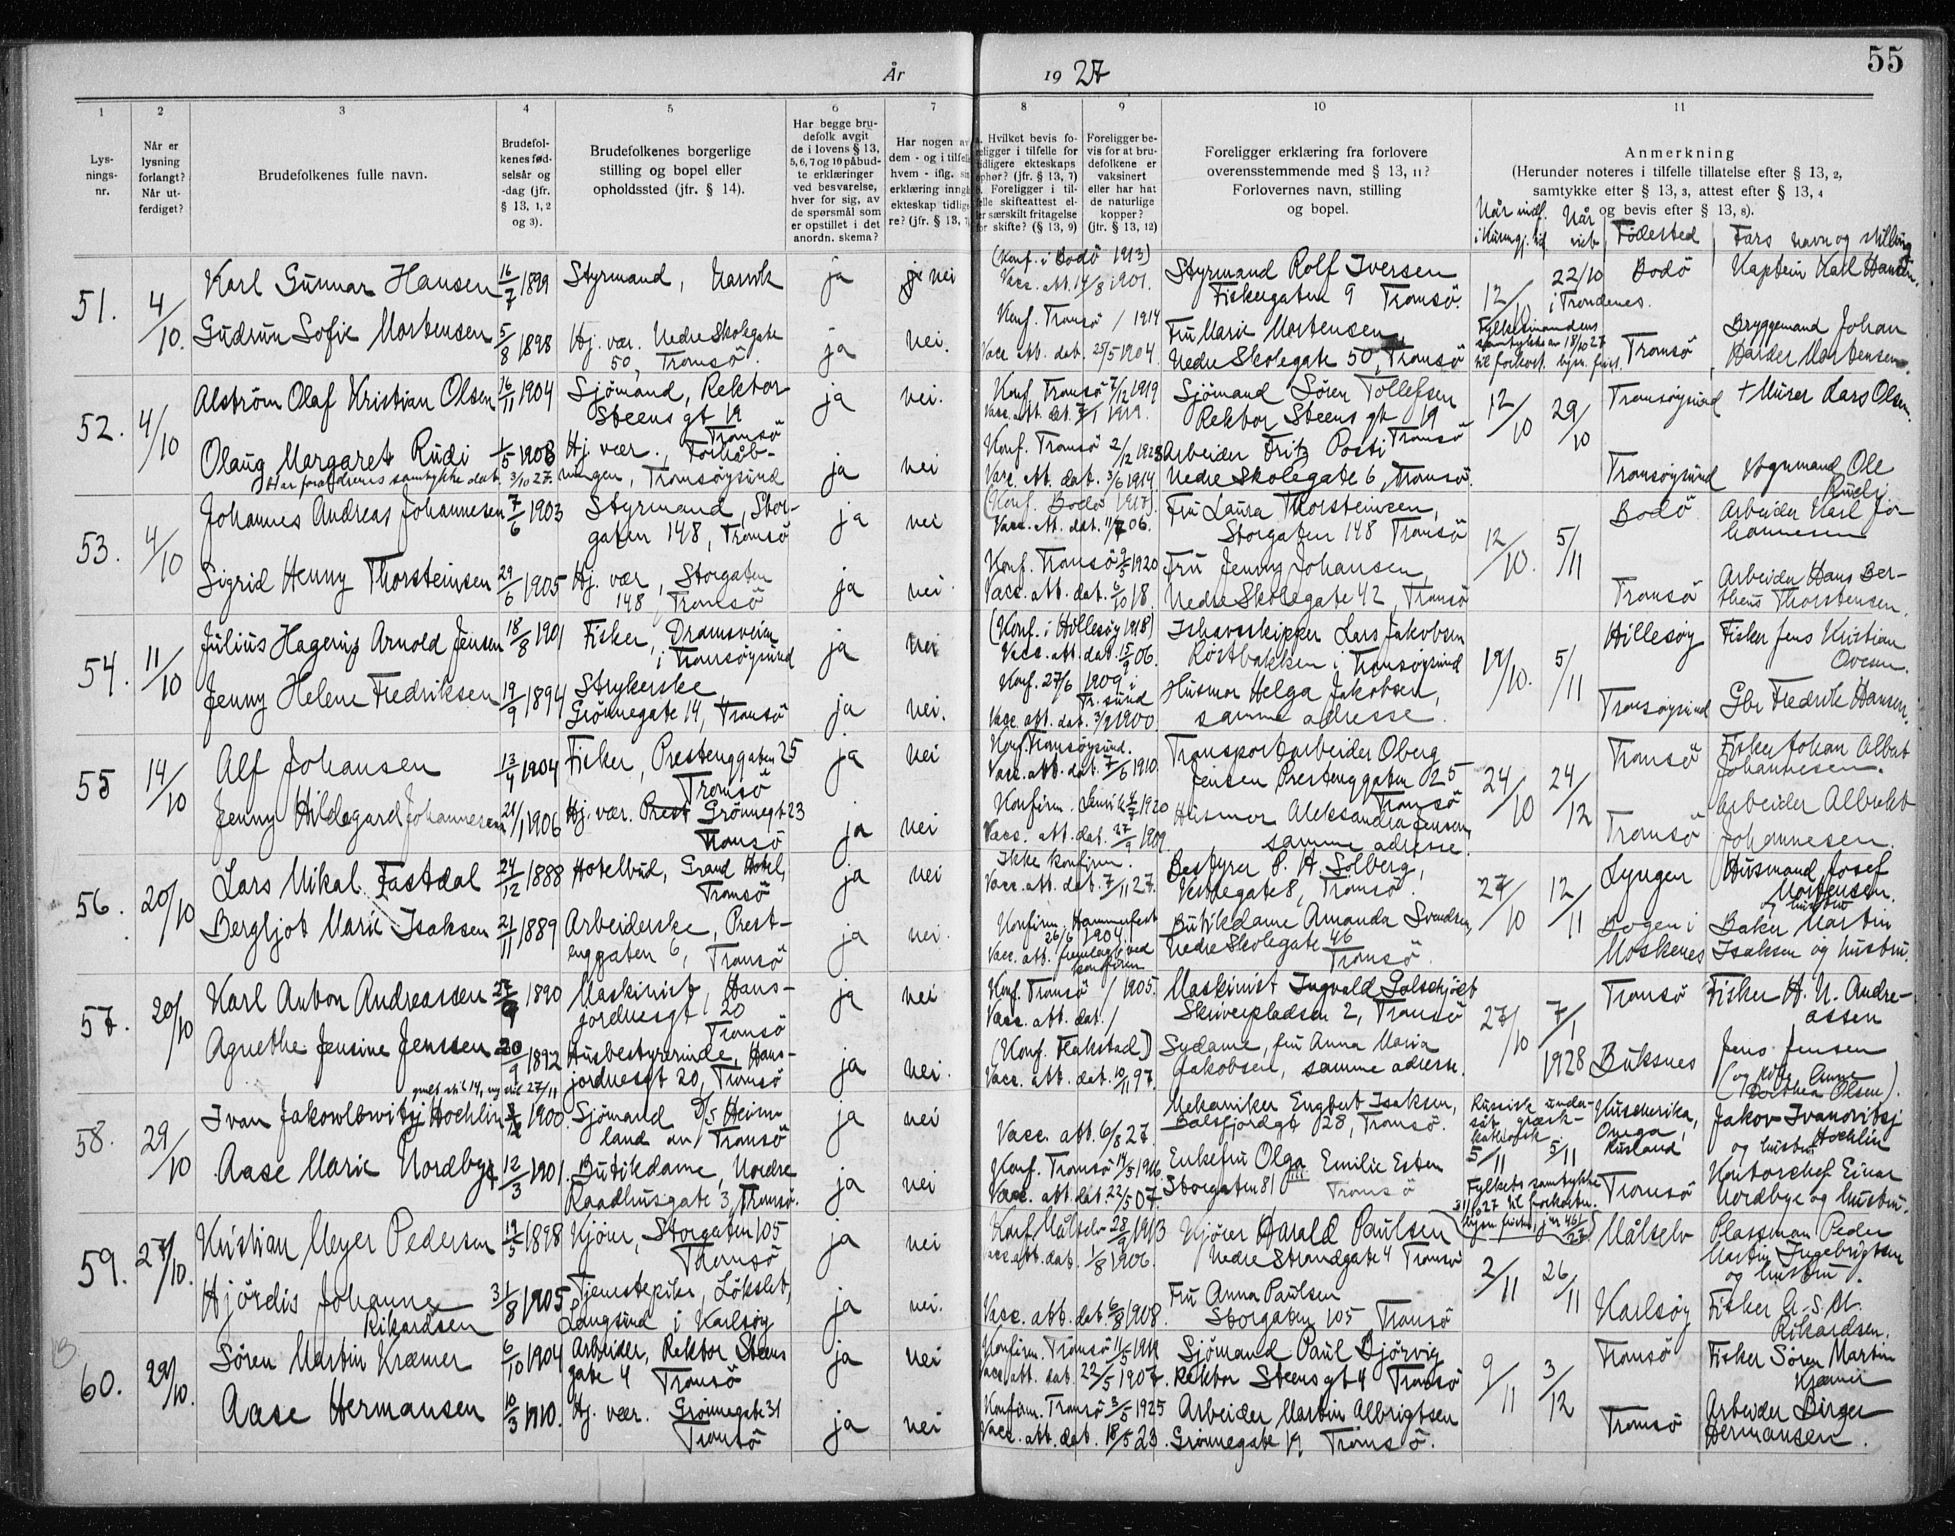 År 1927
55
1
2
3
4
5
6
7
8
9
10
11
Lysnings-nr.
Når er lysning forlangt? Når utferdiget?
Brudefolkenes fulle navn.
Brudefolkenes fødselsår og -dag (jfr. § 13, 1, 2 og 3).
Brudefolkenes borgerlige stilling og bopel eller opholdssted (jfr. § 14).
Har begge brudefolk avgit de i lovens § 13, 5, 6, 7 og 10 påbudte erklæringer ved besvarelse, hver for sig, av de spørsmål som er opstillet i det anordn. skema?
Har nogen av dem - og i tilfelle hvem - iflg. erklæring inngått ekteskap tidligere? (jfr. § 13, 7)
Hvilket bevis foreligger i tilfelle for tidligere ekteskaps ophør? (jfr. § 13, 7) Foreligger i tilfelle skifteattest eller særskilt fritagelse for skifte? (§ 13, 9)
Foreligger bevis for at brudefolkene er vaksinert eller har hat de naturlige kopper? (jfr. § 13, 12)
Foreligger erklæring fra forlovere overensstemmende med § 13, 11? Forlovernes navn, stilling og bopel.
Anmerkning
(Herunder noteres i tilfelle tillatelse efter § 13, 2, samtykke efter § 13, 3, attest efter § 13, 4 og bevis efter § 13, 8).
Når vieb
Fødested
Fars navn og stilling
51. 4/10.
Karl Gunnar Hansen 16/7 1899 Styrmand, Narvik ja nei
(Konf. i Bodö 1913)
Vacc. att. 14/8 1901.
Styrmand Rolf Iversen
Fiskergaten 9 Tromsö.
12/10 22/10 i Trondenes. Bodö Kaptein Karl Hansen.
Gudrun Sofie Mortensen 5/8 1898 Hj. vær. Nedre Skolegate
50, Tromsö. ja nei.
Konf. Tromsö / 1914
Vacc. att. dat. 25/5 1904.
Fru Marie Mortensen
Nedre Skolegate 50, Tromsö
Fylkesmandens
samtykke av 18/10 27
Tromsö Bryggemand Johan
Harder Mortensen.
52. 4/10
Alström Olaf Kristian Olsen 16/11 1904 Sjömand, Rektor
Steens gt 19
Tromsö ja nei.
Konf. Tromsö 7/12 1919
Sjömand Sören Tollefsen
Rektor Steens gt 19
Tromsö
12/10 29/10 Tromsöysund + Murer Lars Olsen.
Olaug Margaret Rudi 1/5 1908 Hj. vær., Forhåb-
ningen, Tromsöysund ja nei
Har forældrenes samtykke dat. 3/10 27.
Konf. Tromsö 2/12 1923
Vacc. att. dat. 3/6 1914
Arbeider Fritz Posti
Nedre Skolegate 6, Tromsö.
Tromsöysund Vognmand Ole
Rudi.
53. 4/10
Johannes Andreas Johannesen 7/6 1903 Styrmand, Stor-
gaten 148, Tromsö ja nei
(Konf. Bodö 1917)
Vacc. att. dat. 11/7 06.
Fru Laura Thorsteinsen,
Storgaten 148 Tromsö
12/10. 5/11 Bodö Arbeider Karl Jo-
hannesen
Sigrid Henny Thorsteinsen 29/6 1905 Hj. vær, Storgaten
148, Tromsö ja nei
Konf. Tromsö 9/5 1920
Vacc. att. dat. 6/10 18.
Fru Jenny Johansen,
Nedre Skolegate 42, Tromsö
Tromsö Arbeider Hans Ber-
theus Thorstensen.
54. 11/10
Julius Hagerup Arnold Jensen 18/8 1901 Fisker, Dramsveien
i Tromsöysund ja nei
(Konf. i Hillesøy 1918)
Vacc. att. dat. 15/9 06.
Ishavsskipper Lars Jakobsen
Röstbakken i Tromsöysund
19/10. 5/11 Hillesöy Fisker Jens Kristian
Ovesen.
Jenny Helene Fredriksen 19/9 1894 Strykerske,
Grönnegate 14, Tromsö ja nei.
Konf. 27/6 1909 i
Tr. sund
Vacc. att. dat. 3/9 1900.
Husmor Helga Jakobsen,
samme adresse.
Tromsöysund Gbr Fredrik Hansen.
55 14/10
Alf Johansen 13/4 1904 Fisker, Prestenggaten 25
Tromsö ja nei
Konf. Tromsöysund.
Vacc. att. dat. 7/6 1910.
Transportarbeider Oberg
Jensen Prestenggaten 25
Tromsö
24/10 24/12 Tromsö Fisker Johan Albert
Johannesen.
Jenny Hildegard Johannesen 21/1 1906 Hj. vær. Prest Grönnegt 23
Tromsö ja nei
Vacc. att. dat. 27/9 1909.
Husmor Aleksandra Jensen
samme adresse.
Tromsö Arbeider Albrekt
Johannesen.
56. 20/10
Lars Mikal Fastdal 24/12 1888 Hotelbud, Grand Hotel,
Tromsö ja nei
Ikke konfirm.
Vacc. att. dat. 7/11 27.
Bestyrer P. H. Solberg,
Vestregate 8, Tromsö.
27/10 12/11 Lyngen Husmand Josef
Mortensen.
og hustru
Bergljot Marie Isaksen 21/11 1889 Arbeiderske, Prest-
enggaten 6, Tromsö ja nei.
Konfirm. Hammerfest
26/6 1904.
Vacc. att. fremlagt ved
konfirm
Butikdame Amanda Svendsen,
Nedre Skolegate 46
Tromsö.
Bogen i
Moskenes Baker Martin
Isaksen og hustru.
57. 20/10
Karl Anton Andreassen 27/9 1890 Maskinist, Hans-
jordnesgt 20
Tromsö ja nei
Konf. Tromsö / 1905.
Vacc. att. dat. /
Maskinist Ingvald
Skriverpladsen 2, Tromsö
27/10 7/1 1928 Tromsö Fisker H. N. Andre-
assen
Agnethe Jensine Jenssen 20/9 1892 Husbestyrerinde, Hans-
jordnesgt 20, Tromsö ja nei.
(Konf. Flakstad)
Vacc. att. dat. 10/11 97.
Sydame, fru Anna Maria
Jakobsen, samme adresse.
Buksnes Jens Jensen
(og Anne
Dorthea Olsen).
58. 29/10
Ivan Jakowlewitsj Hochlin 1900. Sjömand D/S Heim-
land av Tromsö ja nei
Vacc. att. 6/8 27.
Mekaniker Engbert Isaksen,
Balsfjordgt 28, Tromsö.
Russisk under-
sått, græsk-
katholsk
5/11 5/11
Onega,
Rusland
Jakov Ivanovitsj
Hochlin
og hustru
Aase Marie Nordbye 12/3 1901. Butikdame, Nordre
Raadhusgate 3, Tromsö. ja nei
Konf. Tromsö 14/5 1916
Vacc. att. dat. 22/5 07.
Enkefru Olga Emilie Esten
Storgaten 81 III Tromsö
Fylkets samtykke
Tromsö Kontorchef Einar
Nordbye og hustru.
59. 27/10.
Kristian Meyer Pedersen 19/5 1898 Kjörer, Storgaten 105
Tromsö ja nei
Konf. Målselv 28/9 1913
Vacc. att. dat. 1/8 1906.
Kjörer Harald Paulsen
Nedre Strandgate 4 Tromsö
2/11 26/11 Målselv Plassman Peder
Martin Ingebrigtsen
og hustru.
Hjördis Johanne
Rikardsen 31/8 1905 Tjenestepike, Lökslet,
Langsund i Karlsöy ja nei.
Vacc. att. dat. 6/8 1908.
Fru Anna Paulsen
Storgaten 105, Tromsö
Karlsöy Fisker
Rikardsen.
60. 29/10.
Sören Martin Kræmer 6/10 1904 Arbeider, Rektor Steens
gate 4 Tromsö ja nei
Konfirm. Tromsö 11/5 1919
Vacc. att. dat. 22/5 1907.
Sjömand Paul Djörvig
Rektor Steens gt 4 Tromsö
9/11 3/12 Tromsö Fisker Sören Martin
Kræmer
Aase Hermansen 10/3 1910. Hj. vær. Grönnegate 31
Tromsö ja nei
Konfirm. Tromsö 3/5 1925
Vacc. att. dat. 18/5 23.
Arbeider Martin Albrigtsen
Grönnegate 19 Tromsö.
Tromsö Arbeider Birger
Hermansen.